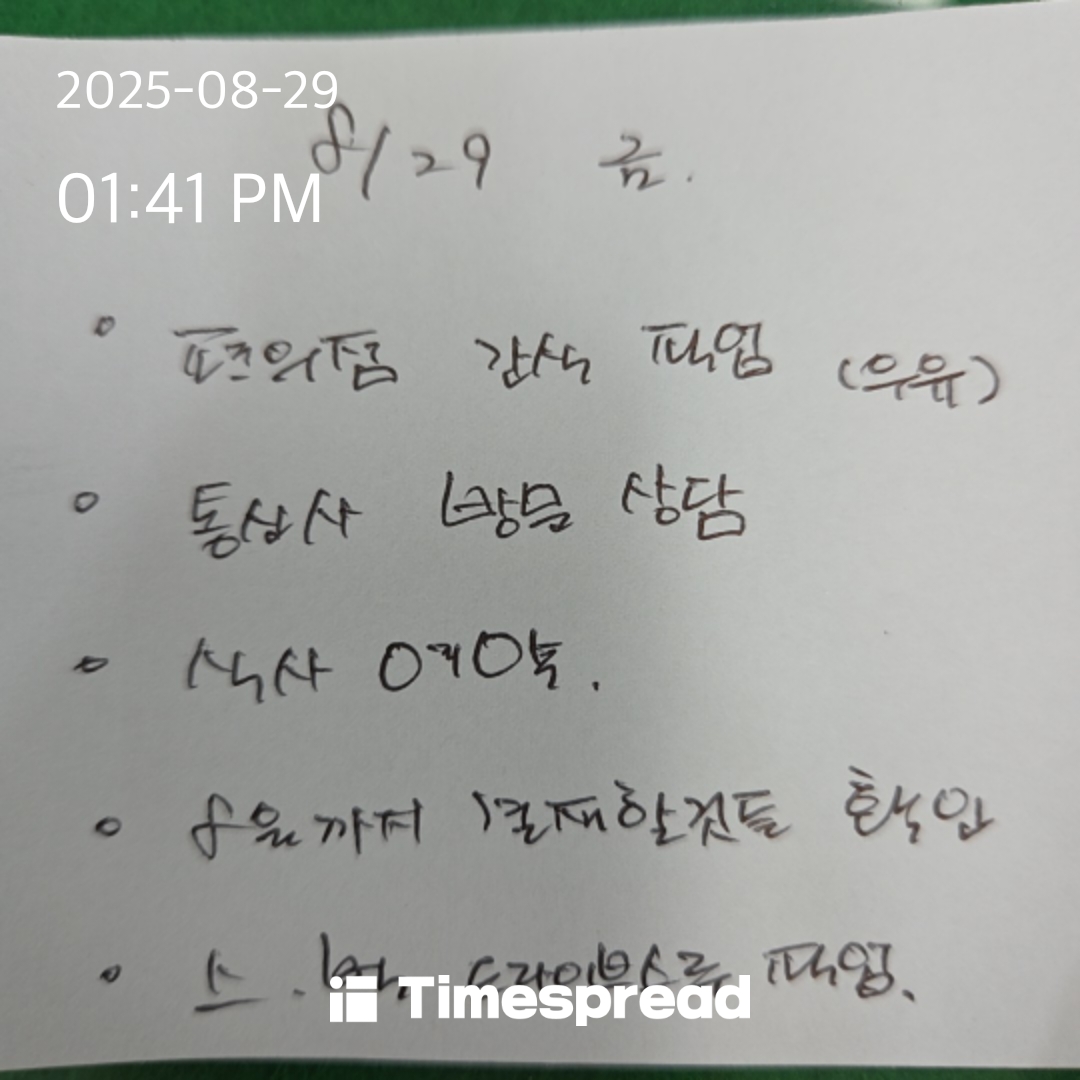 2025-08-29
8/29 금.
01:41 PM
편의점 간식 픽업 (우유)
통신사 방문 상담
식사 예약.
8월까지 결재할것들 확인
스.벅. 드라이브스루 픽업.
Timespread